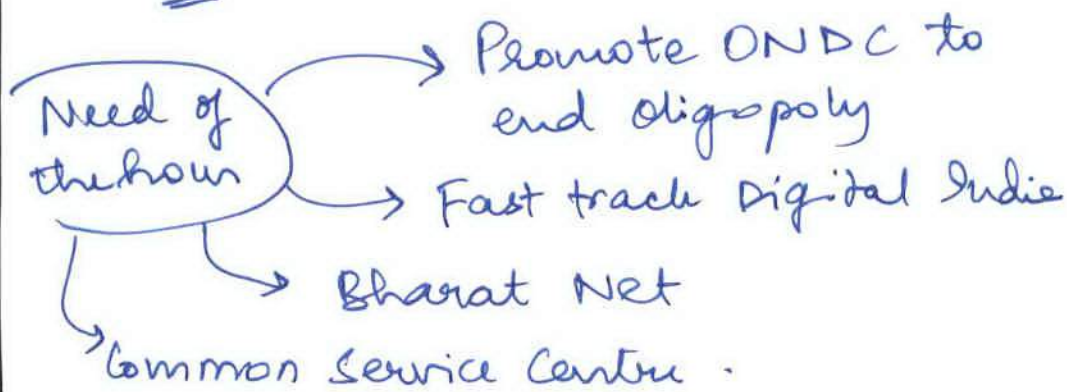 Need of
the hour
Promote ONDC to
end oligopoly
Fast track Digital India
Bharat Net
Common Service Centre .